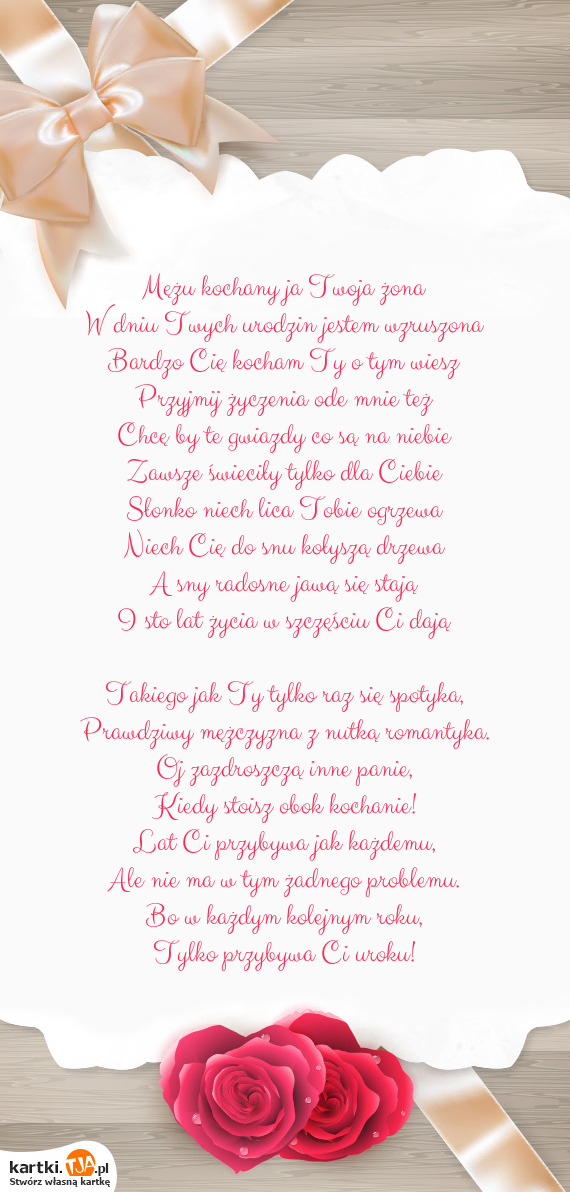 Mężu kochany ja Twoja żona
W dniu Twych urodzin jestem wzruszona
Bardzo Cię kocham Ty o tym wiesz
Przyjmij życzenia ode mnie też
Chcę by te gwiazdy co są na niebie
Zawsze świeciły tylko dla Ciebie
Słonko niech lica Tobie ogrzewa
Niech Cię do snu kołyszą drzewa
A sny radosne jawą się stają
I sto lat życia w szczęściu Ci dają
Takiego jak Ty tylko raz się spotyka,
Prawdziwy mężczyzna z nutką romantyka.
Oj zazdroszczą inne panie,
Kiedy stoisz obok kochanie!
Lat Ci przybywa jak każdemu,
Ale nie ma w tym żadnego problemu.
Bo w każdym kolejnym roku,
Tylko przybywa Ci uroku!
kartki.TJA.pl
Stwórz własną kartkę